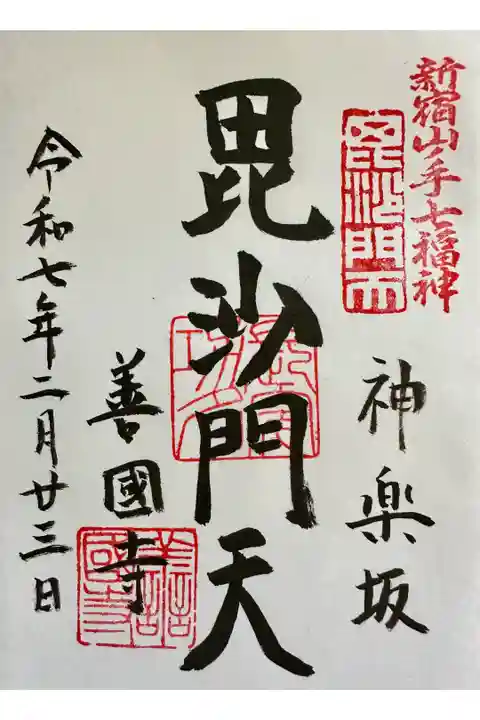 新宿山ノ手七福神
神楽坂
毘沙門天
善國寺
令和七年二月廿三日
善國寺